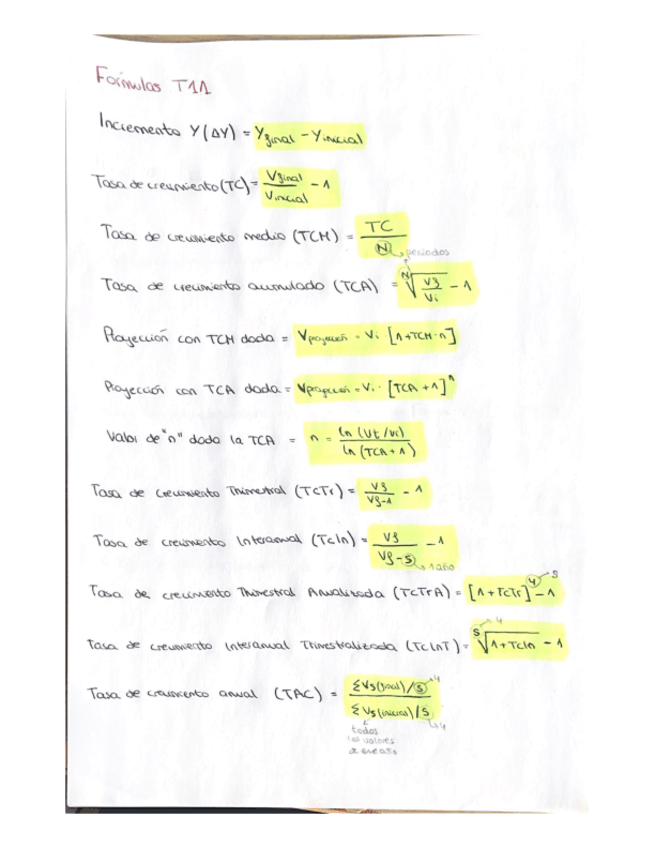 Fórmulas T11
Incremento Y(ΔY) = Yfinal - Yinicial
Tasa de crecimiento (TC) = Vfinal / Vinicial - 1
Tasa de crecimiento medio (TCM) = TC / N → periodos
Tasa de crecimiento acumulado (TCA) = N√(Vf / Vi) - 1
Proyección con TCM dada = Vproyección = Vi · [1+TCM·n]
Proyección con TCA dada = Vproyección = Vi · [TCA + 1]ⁿ
Valor de "n" dada la TCA = n = ln (Vt/Vi) / ln (TCA + 1)
Tasa de crecimiento Trimestral (TcTr) = Vf / Vf-1 - 1
Tasa de crecimiento Interanual (TcIn) = Vf / Vf-S - 1 → 1 año
Tasa de crecimiento Trimestral Anualizada (TcTrA) = [1+TcTr]⁴ - 1 → S
Tasa de crecimiento Interanual Trimestralizada (TcInT) = S√(1+TcIn) - 1 → 4
Tasa de crecimiento anual (TAC) = ΣVs(final)/S → 4 / ΣVs(inicial)/S → 4
todos
los valores
de ese año